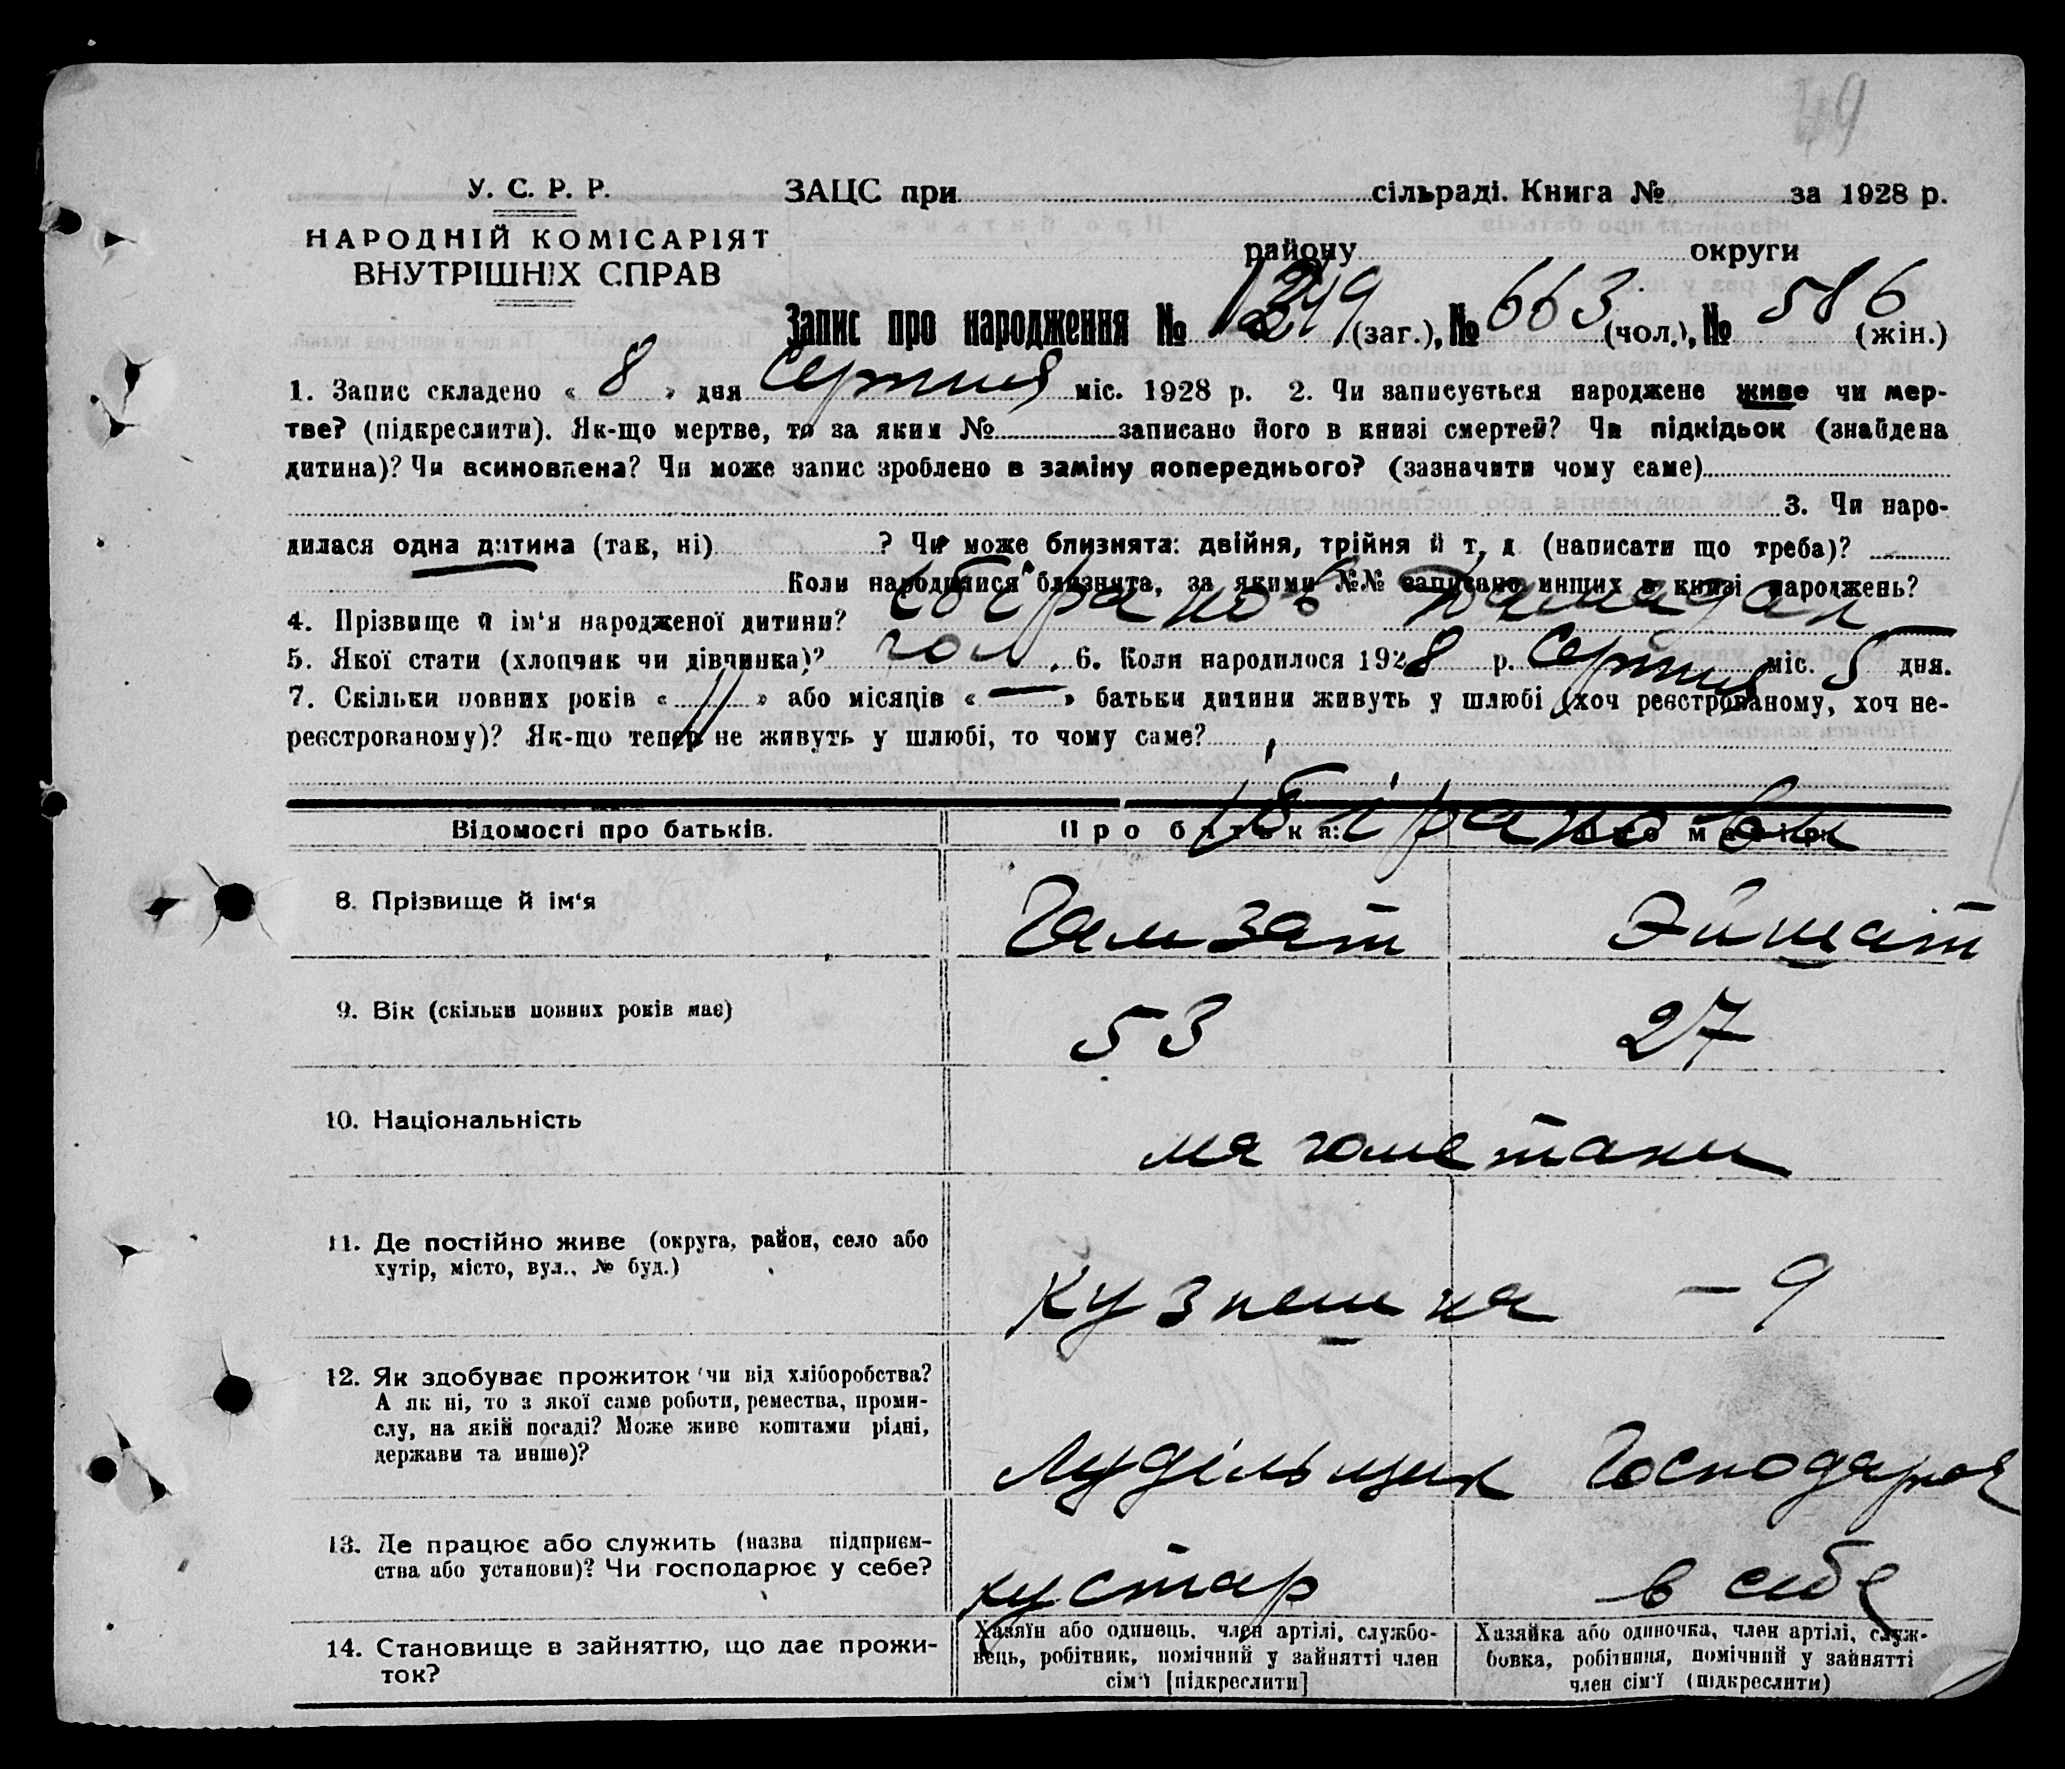 49
У. С. Р. Р.
ЗАЦС при сільраді. Книга № за 1928 р.
НАРОДНІЙ КОМІСАРІЯТ
ВНУТРІШНІХ СПРАВ
району округи
Запис про народження № 1249 (заг.), № 663 (чол.), № 586 (жін.)
1. Запис складено « 8 » дня Серпня міс. 1928 р. 2. Чи записується народжене живе чи мер-
тве? (підкреслити). Як-що мертве, то за яким № записано його в книзі смертей? Чи підкідьок (знайдена
дитина)? Чи всиновлена? Чи може запис зроблено в заміну попереднього? (зазначити чому саме)
3. Чи наро-
дилася одна дитина (так, ні) ? Чи може близнята: двійня, трійня й т. д (написати що треба)?
Коли народилися близнята, за якими №№ записано инших в книзі народжень?
4. Прізвище й ім'я народженої дитини? Ібіранов Рамадан
5. Якої стати (хлопчик чи дівчинка)? чол. 6. Коли народилося 1928 р. Серпня міс. 5 дня.
7. Скільки повних років « 11 » або місяців « — » батьки дитини живуть у шлюбі (хоч реєстрованому, хоч не-
реєстрованому)? Як-що тепер не живуть у шлюбі, то чому саме?
Відомості про батьків. Про батька: Про матір:
Ібіранови
8. Прізвище й ім'я Гамзат Эйшат
9. Вік (скільки повних років має) 53 27
10. Національність магометани
11. Де постійно живе (округа, район, село або
хутір, місто, вул., № буд.)
Кузнешна – 9
12. Як здобуває прожиток чи від хліборобства?
А як ні, то з якої саме роботи, ремества, проми-
слу, на якій посаді? Може живе коштами рідні,
держави та инше)?
Лудільщик Господарює
13. Де працює або служить (назва підприєм-
ства або установи)? Чи господарює у себе?
кустар в себе
14. Становище в зайняттю, що дає прожи-
ток?
Хазяїн або одинець, член артілі, службо-
вець, робітник, помічний у зайнятті член
сім'ї [підкреслити]
Хазяйка або одиночка, член артілі, служ-
бовка, робітниця, помічний у зайнятті
член сім'ї (підкреслити)